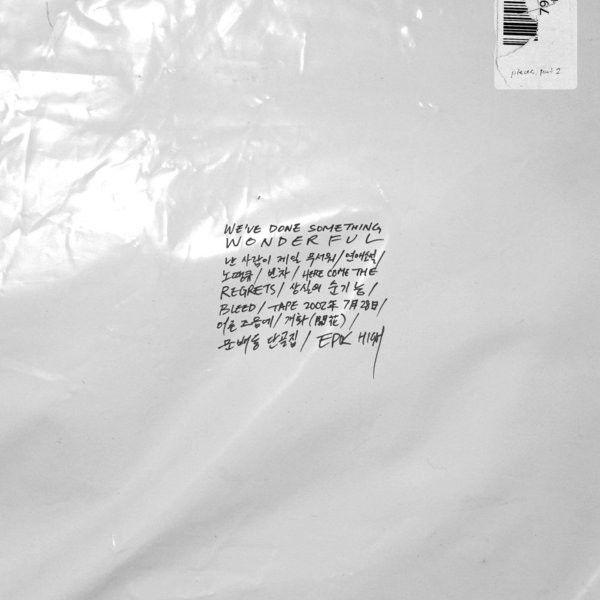 79
pieces, part 2
WE'VE DONE SOMETHING
WONDERFUL
난 사람이 제일 무서워 / 연애소설 /
노땡큐 / 빈차 / HERE COME THE
REGRETS / 상실의 순기능 /
BLEED / TAPE 2002年 7月 28日 /
어른 즈음에 / 개화 (開花) /
문배동 단골집 / EPIK HIGH